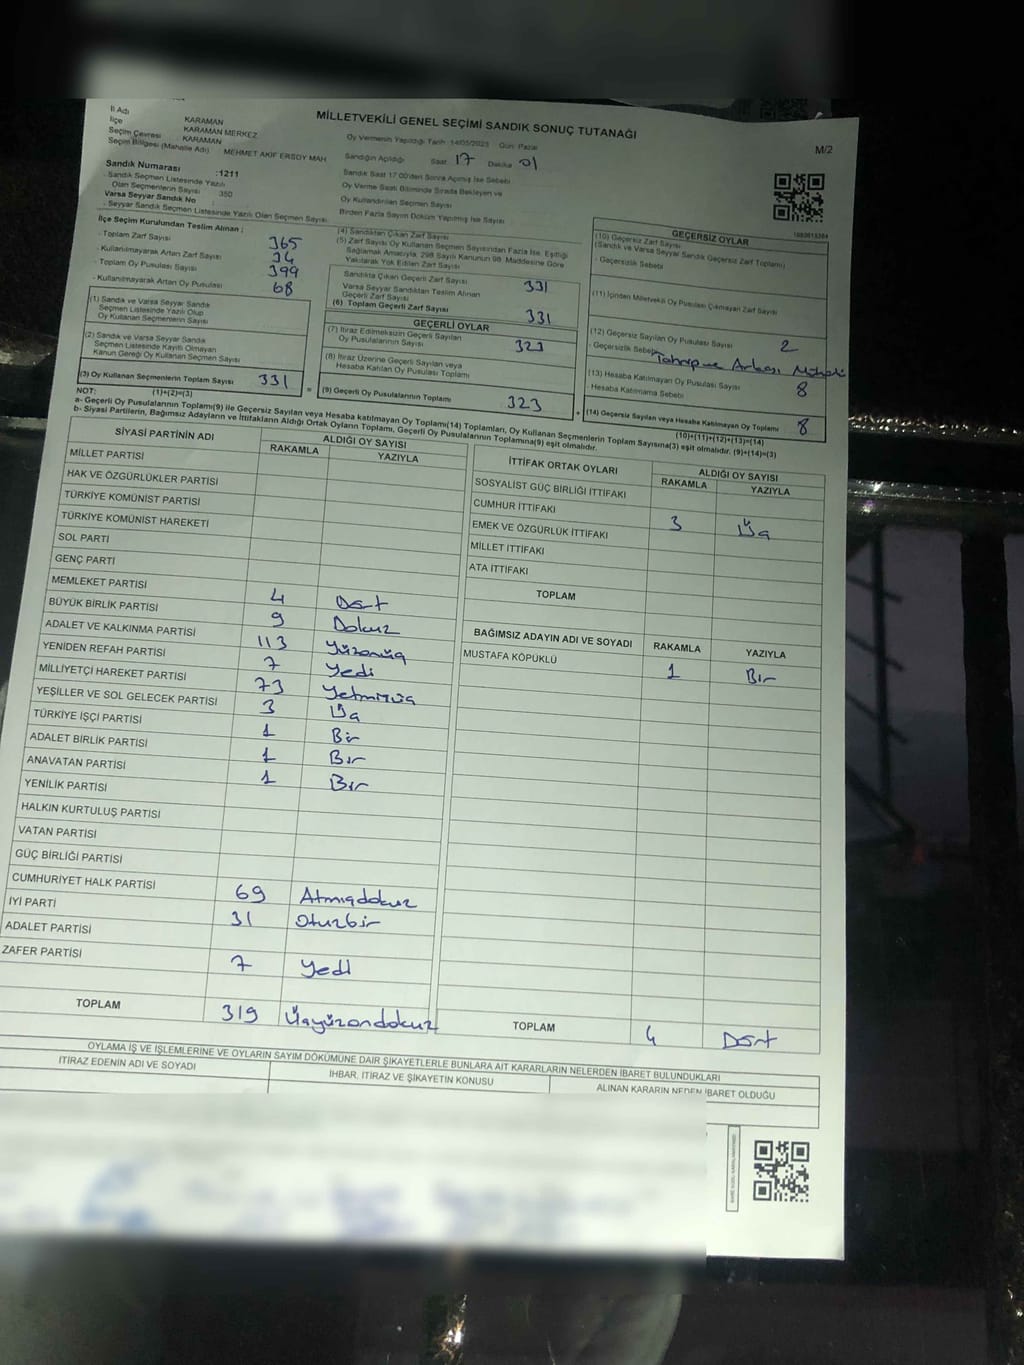 İl Adı KARAMAN
İlçe KARAMAN MERKEZ
Seçim Çevresi KARAMAN
Seçim Bölgesi (Mahalle Adı) MEHMET AKİF ERSOY MAH
MİLLETVEKİLİ GENEL SEÇİMİ SANDIK SONUÇ TUTANAĞI
M/2
Oy Vermenin Yapıldığı Tarih :14/05/2023 Gün: Pazar
Sandığın Açıldığı Saat 17 Dakika 01
Sandık Saat 17:00'den Sonra Açılmış İse Sebebi
Oy Verme Saati Bitiminde Sırada Bekleyen ve
Oy Kullandırılan Seçmen Sayısı
Birden Fazla Sayım Döküm Yapılmış İse Sayısı
Sandık Numarası :1211
- Sandık Seçmen Listesinde Yazılı
Olan Seçmenlerin Sayısı : 350
Varsa Seyyar Sandık No :
- Seyyar Sandık Seçmen Listesinde Yazılı Olan Seçmen Sayısı
İlçe Seçim Kurulundan Teslim Alınan ;
- Toplam Zarf Sayısı 365
- Kullanılmayarak Artan Zarf Sayısı 34
- Toplam Oy Pusulası Sayısı 399
- Kullanılmayarak Artan Oy Pusulası 68
(1) Sandık ve Varsa Seyyar Sandık
Seçmen Listesinde Yazılı Olup
Oy Kullanan Seçmenlerin Sayısı
(2) Sandık ve Varsa Seyyar Sandık
Seçmen Listesinde Kayıtlı Olmayan
Kanun Gereği Oy Kullanan Seçmen Sayısı
(3) Oy Kullanan Seçmenlerin Toplam Sayısı 331
(1)+(2)=(3)
(4) Sandıktan Çıkan Zarf Sayısı
(5) Zarf Sayısı Oy Kullanan Seçmen Sayısından Fazla İse, Eşitliği
Sağlamak Amacıyla, 298 Sayılı Kanunun 98. Maddesine Göre
Yakılarak Yok Edilen Zarf Sayısı
Sandıkta Çıkan Geçerli Zarf Sayısı 331
Varsa Seyyar Sandıktan Teslim Alınan
Geçerli Zarf Sayısı
(6) Toplam Geçerli Zarf Sayısı 331
GEÇERLİ OYLAR
(7) İtiraz Edilmeksizin Geçerli Sayılan
Oy Pusulalarının Sayısı 323
(8) İtiraz Üzerine Geçerli Sayılan veya
Hesaba Katılan Oy Pusulası Toplamı
(9) Geçerli Oy Pusulalarının Toplamı 323
GEÇERSİZ OYLAR
(10) Geçersiz Zarf Sayısı
(Sandık ve Varsa Seyyar Sandık Geçersiz Zarf Toplamı)
- Geçersizlik Sebebi
(11) İçinden Milletvekili Oy Pusulası Çıkmayan Zarf Sayısı
(12) Geçersiz Sayılan Oy Pusulası Sayısı 2
- Geçersizlik Sebebi
(13) Hesaba Katılmayan Oy Pusulası Sayısı 8
- Hesaba Katılmama Sebebi
(14) Geçersiz Sayılan veya Hesaba Katılmayan Oy Toplamı 8
(10)+(11)+(12)+(13)=(14)
NOT:
a- Geçerli Oy Pusulalarının Toplamı(9) ile Geçersiz Sayılan veya Hesaba katılmayan Oy Toplamı(14) Toplamları, Oy Kullanan Seçmenlerin Toplam Sayısına(3) eşit olmalıdır. (9)+(14)=(3)
b- Siyasi Partilerin, Bağımsız Adayların ve İttifakların Aldığı Ortak Oyların Toplamı, Geçerli Oy Pusulalarının Toplamına(9) eşit olmalıdır.
SİYASİ PARTİNİN ADI ALDIĞI OY SAYISI
RAKAMLA YAZIYLA
MİLLET PARTİSİ
HAK VE ÖZGÜRLÜKLER PARTİSİ
TÜRKİYE KOMÜNİST PARTİSİ
TÜRKİYE KOMÜNİST HAREKETİ
SOL PARTİ
GENÇ PARTİ
MEMLEKET PARTİSİ 4 Dört
BÜYÜK BİRLİK PARTİSİ 9 Dokuz
ADALET VE KALKINMA PARTİSİ 113 Yüzonüç
YENİDEN REFAH PARTİSİ 7 Yedi
MİLLİYETÇİ HAREKET PARTİSİ 73 Yetmişüç
YEŞİLLER VE SOL GELECEK PARTİSİ 3 Üç
TÜRKİYE İŞÇİ PARTİSİ 1 Bir
ADALET BİRLİK PARTİSİ 1 Bir
ANAVATAN PARTİSİ 1 Bir
YENİLİK PARTİSİ
HALKIN KURTULUŞ PARTİSİ
VATAN PARTİSİ
GÜÇ BİRLİĞİ PARTİSİ
CUMHURİYET HALK PARTİSİ 69 Atmışdokuz
İYİ PARTİ 31 Oturbir
ADALET PARTİSİ
ZAFER PARTİSİ 7 Yedi
TOPLAM 319 Üçyüzondokuz
İTTİFAK ORTAK OYLARI ALDIĞI OY SAYISI
RAKAMLA YAZIYLA
SOSYALİST GÜÇ BİRLİĞİ İTTİFAKI
CUMHUR İTTİFAKI 3 Üç
EMEK VE ÖZGÜRLÜK İTTİFAKI
MİLLET İTTİFAKI
ATA İTTİFAKI
TOPLAM
BAĞIMSIZ ADAYIN ADI VE SOYADI RAKAMLA YAZIYLA
MUSTAFA KÖPÜKLÜ 1 Bir
TOPLAM 4 Dört
OYLAMA İŞ VE İŞLEMLERİNE VE OYLARIN SAYIM DÖKÜMÜNE DAİR ŞİKAYETLERLE BUNLARA AİT KARARLARIN NELERDEN İBARET BULUNDUKLARI
İTİRAZ EDENİN ADI VE SOYADI İHBAR, İTİRAZ VE ŞİKAYETİN KONUSU ALINAN KARARIN NEDEN İBARET OLDUĞU